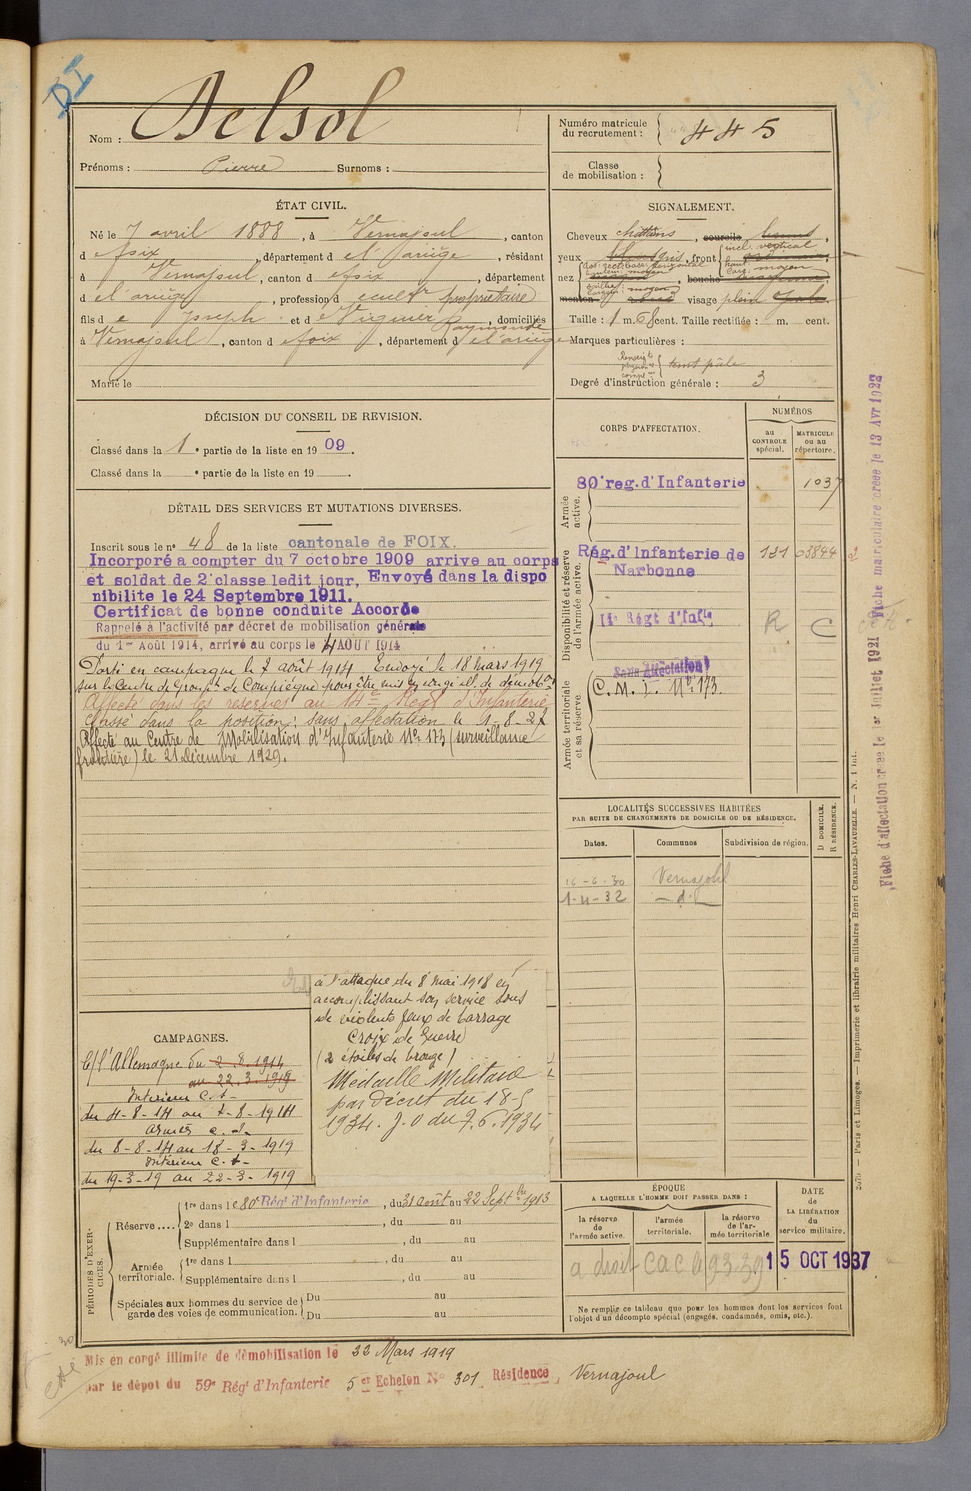 DI
Nom : Delsol
Prénoms : Pierre Surnoms :
Numéro matricule du recrutement : 445
Classe de mobilisation :
ÉTAT CIVIL.
Né le 7 avril 1888, à Vernajoul, canton
d e foix, département d e l'ariège, résidant
à Vernajoul, canton d e foix, département
d e l'ariège, profession d cultr propriétaire
fils d e Joseph et d e Viguier Raymonde, domiciliés
à Vernajoul, canton d e foix, département d e l'ariège
Marié le
SIGNALEMENT.
Cheveux chatains, sourcils bruns,
yeux bleu gris, front incl. vertical
haut
larg. moyen
nez dos rect. base horizontal
hauteur moyen
bouche moyenne,
saillie
largeur moyen
menton rond visage plein ovale.
Taille : 1 m. 68 cent. Taille rectifiée : m. cent.
Marques particulières :
Renseigts physion. compl. teint pâle
Degré d'instruction générale : 3
DÉCISION DU CONSEIL DE REVISION.
Classé dans la 1e partie de la liste en 1909.
Classé dans la e partie de la liste en 19 .
DÉTAIL DES SERVICES ET MUTATIONS DIVERSES.
Inscrit sous le no 48 de la liste cantonale de FOIX.
Incorporé a compter du 7 octobre 1909 arrive au corps
et soldat de 2e classe ledit jour, Envoyé dans la dispo
nibilite le 24 Septembre 1911.
Certificat de bonne conduite Accordé
Rappelé à l'activité par décret de mobilisation générale
du 1er Août 1914, arrivé au corps le 4 AOUT 1914
Parti en campagne le 7 août 1914 Envoyé le 18 mars 1919
sur le Centre de Groupt de Compiègne pour être mis en congé ill. de démobon
Affecté dans les réserves au 14e Regt d'Infanterie
Classé dans la position "sans affectation" le 1-8-27
Affecté au Centre de Mobilisation d'Infanterie No 173 (surveillance
frontière) le 21 décembre 1929.
à l'attaque du 8 mai 1918 en
accomplissant son service sous
de violents feux de barrage
Croix de Guerre
(2 étoiles de bronze)
Médaille Militaire
par décret du 18-5
1934. J.O du 7.6.1934
CAMPAGNES.
C/ l'Allemagne du 2.8.1914
au 22.3.1919
Intérieur C.S.
du 4-8-14 au 7-8-1914
Armées C.D.
du 8-8-14 au 18-3-1919
Intérieur C.S.
du 19-3-19 au 22-3-1919
CORPS D'AFFECTATION.
NUMÉROS
au CONTROLE spécial.
MATRICULE ou au répertoire.
Armée active.
80e reg. d'Infanterie 1037
Disponibilité et réserve de l'armée active.
Rég. d'Infanterie de Narbonne 121 03844
14e Régt d'Infie R C
Armée territoriale et sa réserve
Sans Affectation
(C.M.I. No 173.
LOCALITÉS SUCCESSIVES HABITÉES
PAR SUITE DE CHANGEMENTS DE DOMICILE OU DE RÉSIDENCE.
Dates. Communes Subdivision de région. D DOMICILE. R RÉSIDENCE.
16-6-30 Vernajoul
1-4-32 -d-
PÉRIODES D'EXERCICES.
Réserve....
1re dans l e 80e Régt d'Infanterie, du 31 août au 22 Septbre 1913
2e dans l , du au
Supplémentaire dans l , du au
Armée territoriale.
1re dans l , du au
Supplémentaire dans l , du au
Spéciales aux hommes du service de garde des voies de communication.
Du au
Du au
ÉPOQUE
A LAQUELLE L'HOMME DOIT PASSER DANS :
la réserve de l'armée active.
l'armée territoriale.
la réserve de l'armée territoriale
DATE de LA LIBÉRATION du service militaire.
a droit CAC
15 OCT 1937
Ne remplir ce tableau que pour les hommes dont les services font l'objet d'un décompte spécial (engagés, condamnés, omis, etc.).
Mis en congé illimité de démobilisation le 22 Mars 1919
par le dépot du 59e Régt d'Infanterie 5er Echelon No 301 Résidence Vernajoul
Fiche d'affectation créée le 1er Juillet 1921 Fiche matriculaire créée le 13 Avr 1922
Paris et Limoges. — Imprimerie et librairie militaires Henri CHARLES-LAVAUZELLE. — N. 1 int.